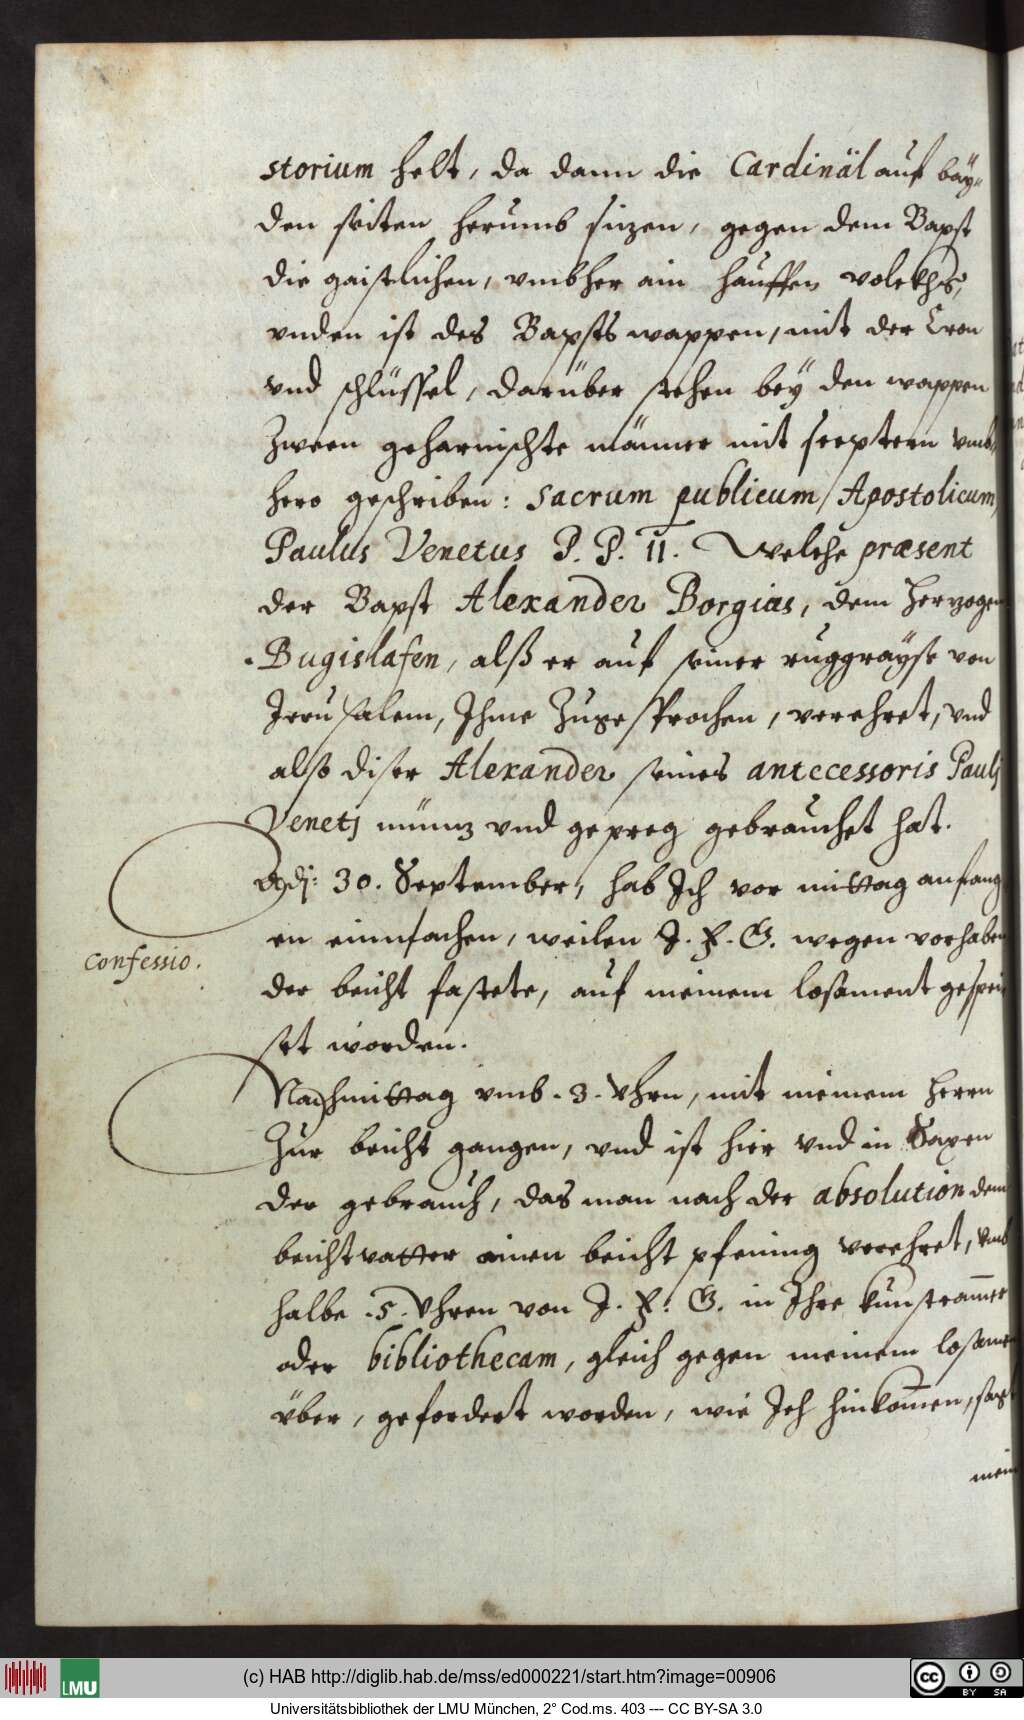 storium helt, da dann die Cardinäl auf bäy-
den seiten herumb sizen, gegen dem Bapst
die gaistlichen, vmbher ain hauffen volckhs,
vnden ist des Bapsts wappen, mit der Cron
vnd schlüssel, darüber stehen bey den wappen
Zween geharnischte männer mit sceptern vmb-
hero geschriben: Sacrum publicum / Apostolicum,
Paulus Venetus P. P. II. Welche præsent
der Bapst Alexander Borgias, dem Herzogen
Bugislafen, alß er auf seiner ruggrayse von
Jerusalem, Ihme Zugesprochen, verehret, vnd
alß diser Alexander seines antecessoris Paulj
Venetj münz vnd gepreg gebrauchet hat.
Adj: 30. September, hab Ich vor mittag anfang
en einmachen, weilen J. F. G. wegen vorhaben
Confessio.
der beicht fastete, auf meinem losament gespei
set worden.
Nachmittag vmb .3. Vhrn, mit meinem Herrn
Zur beicht gangen, vnd ist hier vnd in Saxen
der gebrauch, das man nach der absolution dem
beichtvatter einen beicht pfening verehret, vmb
halbe .5. Vhren von J. F. G. in Ihre kunstcam̅er
oder bibliothecam, gleich gegen meinem losament
über, gefordert worden, wie Ich hinkom̅en, sagt
mein
(c) HAB http://diglib.hab.de/mss/ed000221/start.htm?image=00906
LMU
CC BY SA
Universitätsbibliothek der LMU München, 2° Cod.ms. 403 --- CC BY-SA 3.0